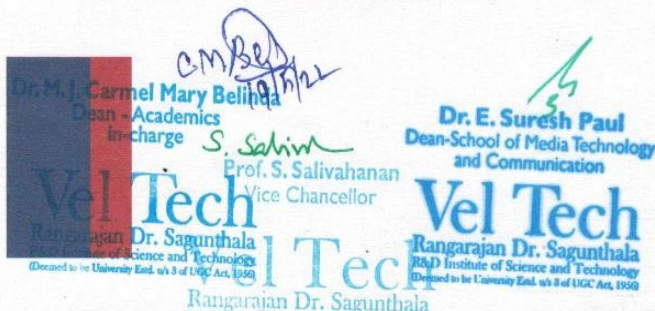 C.M.Bel
19/5/22
Dr. M.J. Carmel Mary Belinda
Dean - Academics
in-charge
Vel Tech
Rangarajan Dr. Sagunthala
R&D Institute of Science and Technology
(Deemed to be University Estd. u/s 3 of UGC Act, 1956)
S. Saliva
Prof. S. Salivahanan
Vice Chancellor
Vel Tech
Rangarajan Dr. Sagunthala
Dr. E. Suresh Paul
Dean-School of Media Technology
and Communication
Vel Tech
Rangarajan Dr. Sagunthala
R&D Institute of Science and Technology
(Deemed to be University Estd. u/s 3 of UGC Act, 1956)